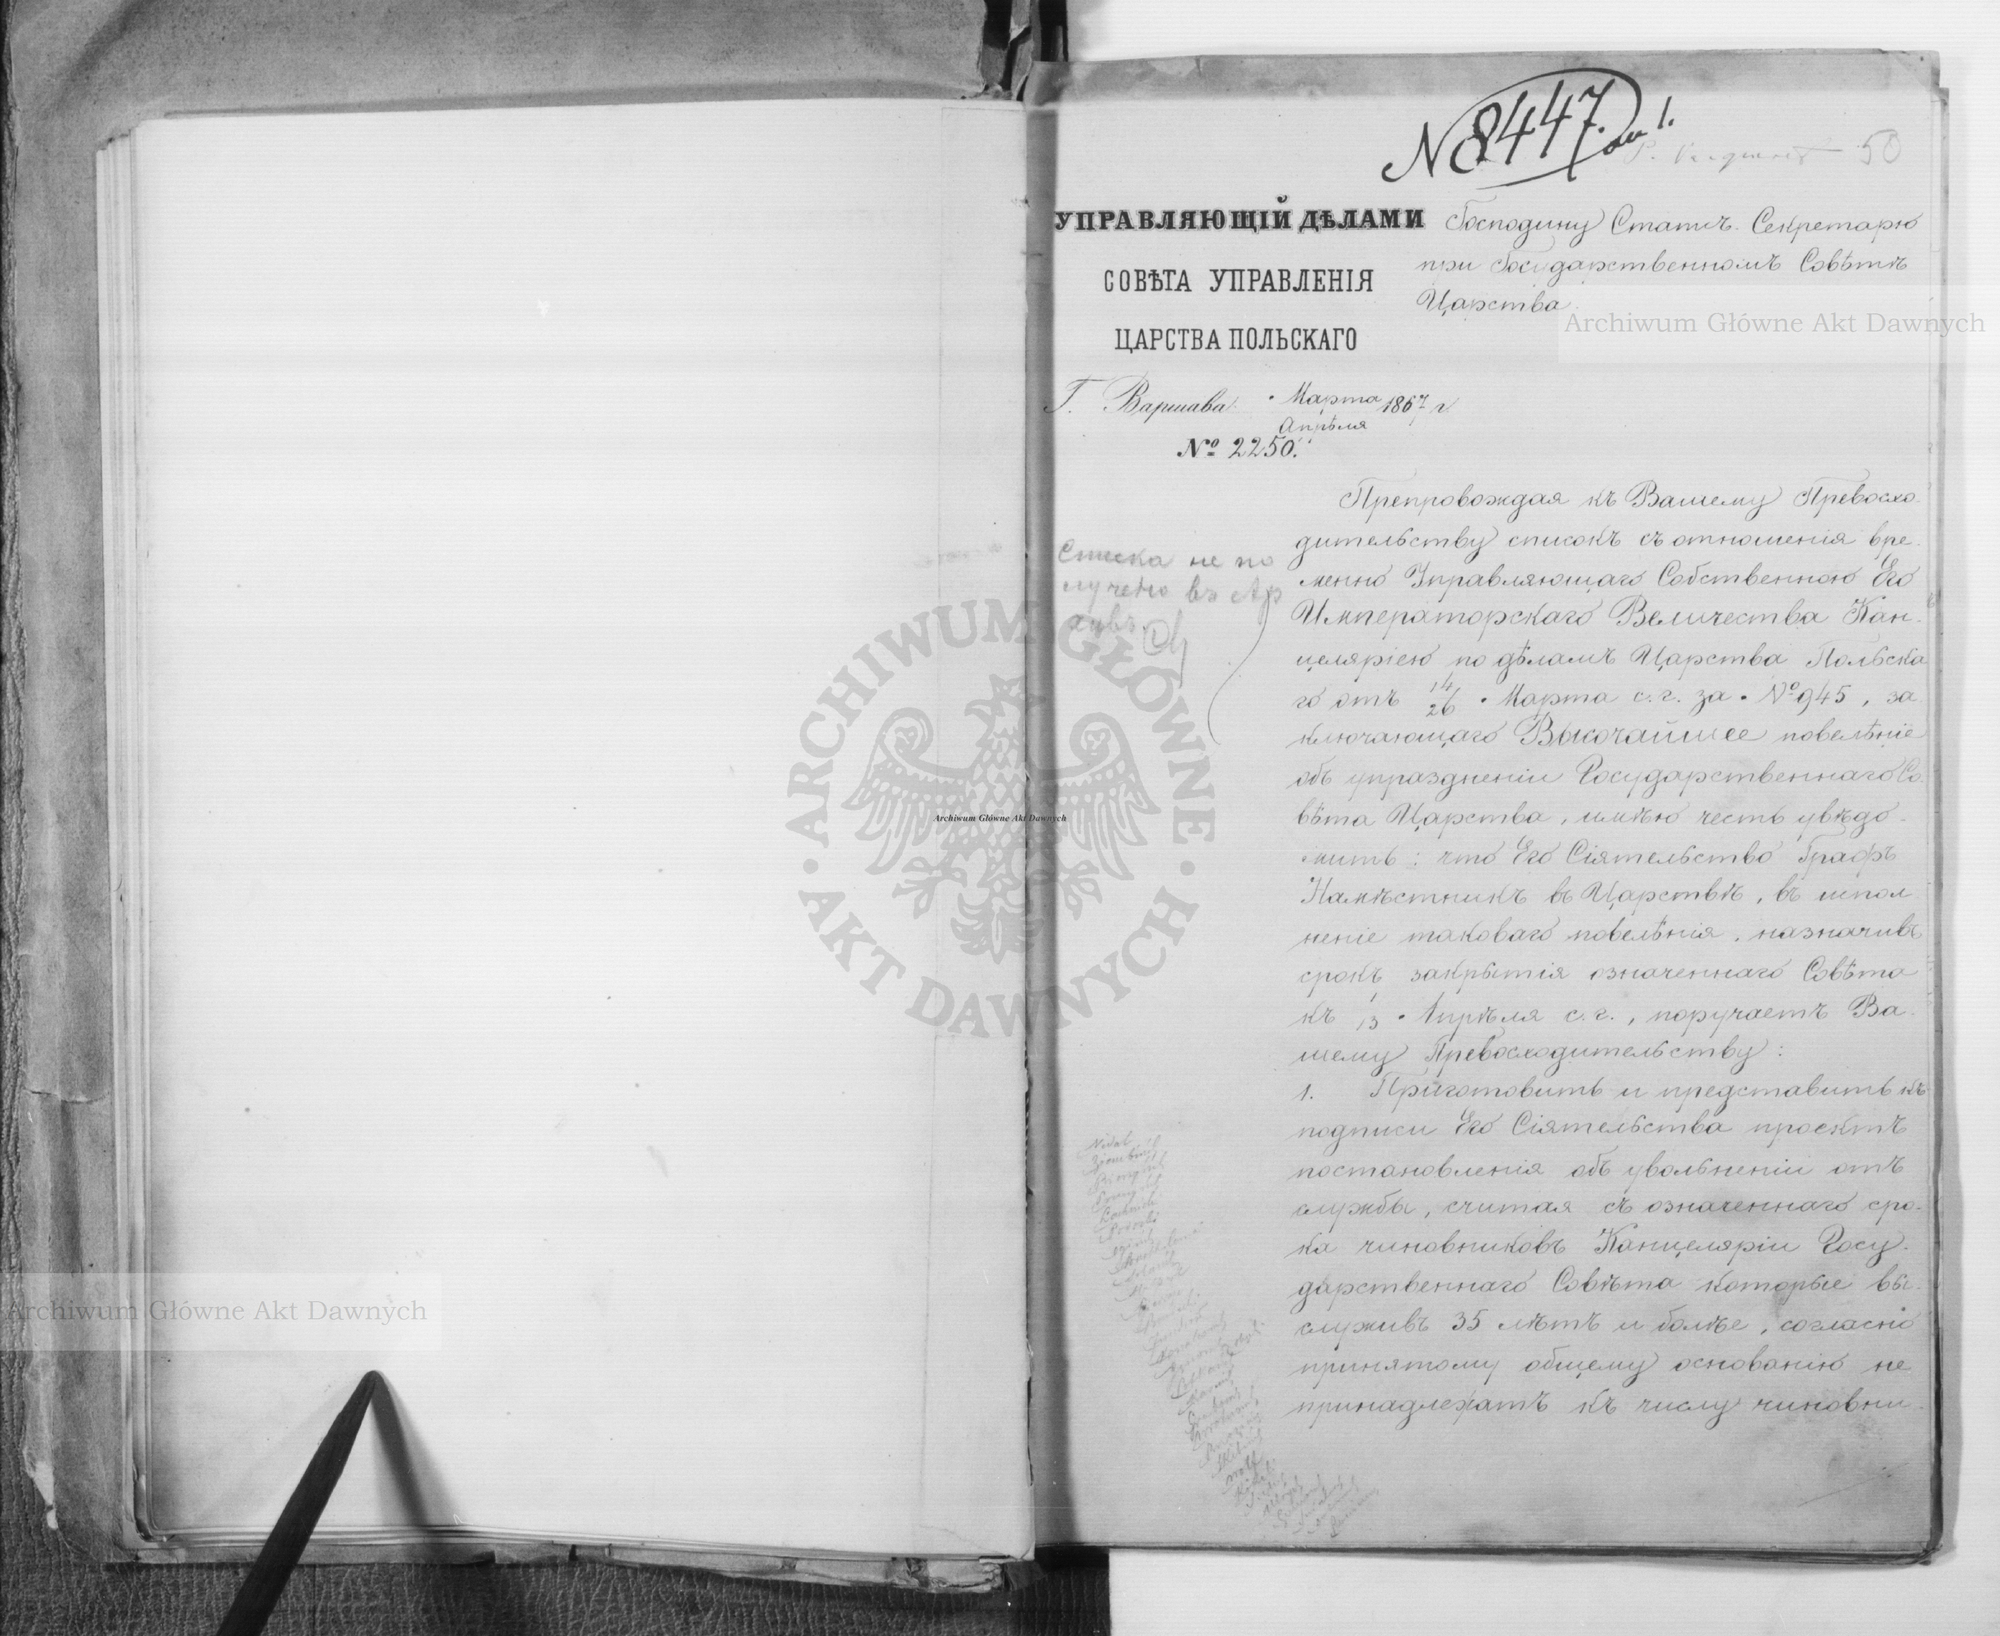 N 8447.
50
УПРАВЛЯЮЩІЙ ДѢЛАМИ
СОВѢТА УПРАВЛЕНІЯ
ЦАРСТВА ПОЛЬСКАГО
Г. Варшава. Марта
Апрѣля 1867 г
№ 2250.
Господину Статсъ-Секретарю
при Государственномъ Совѣтѣ
Царства
Archiwum Główne Akt Dawnych
Списка не по
лучено въ Ар
хивъ.
Препровождая къ Вашему Превосхо-
дительству списокъ съ отношенія вре-
менно Управляющаго Собственною Его
Императорскаго Величества Кан-
целяріею по дѣламъ Царства Польска
го отъ 14/26 Марта с. г. за № 945, за
ключающаго Высочайшее повелѣніе
объ упраздненіи Государственнаго Со-
вѣта Царства, имѣю честь увѣдо-
мить: что Его Сіятельство Графъ
Намѣстникъ въ Царствѣ, въ испол
неніе таковаго повелѣнія, назначивъ
срокъ закрытія означеннаго Совѣта
къ 1/13 Апрѣля с. г., поручаетъ Ва-
шему Превосходительству:
1. Приготовить и представить къ
подписи Его Сіятельства проектъ
постановленія объ увольненіи отъ
службы, считая съ означеннаго сро-
ка чиновниковъ Канцеляріи Госу-
дарственнаго Совѣта которые вы-
служивъ 35 лѣтъ и болѣе, согласно
принятому общему основанію не
принадлежатъ къ числу чиновни-
ARCHIWUM GŁÓWNE · AKT DAWNYCH ·
Archiwum Główne Akt Dawnych
Archiwum Główne Akt Dawnych